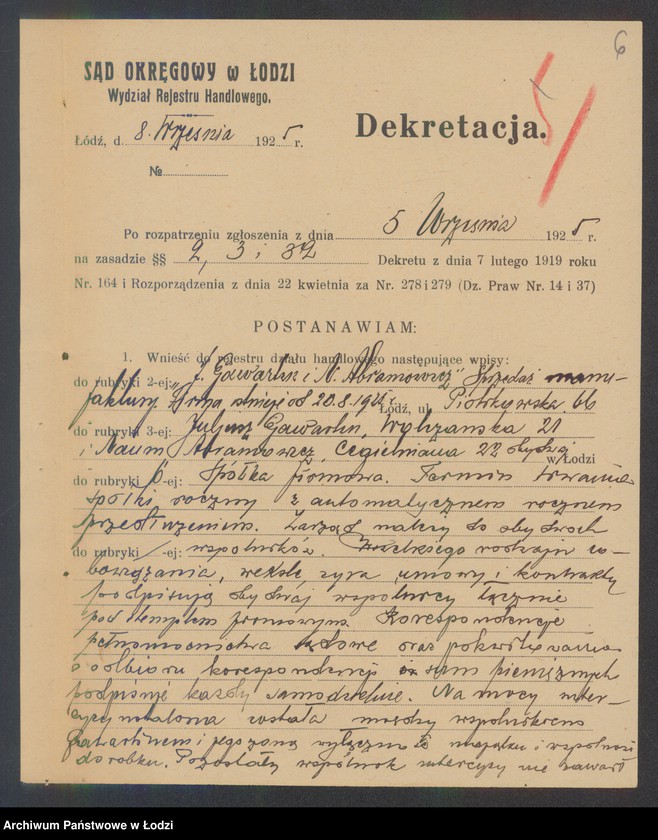 6
SĄD OKRĘGOWY w ŁODZI
Wydział Rejestru Handlowego.
Łódź, d. 8. Września 1925 r.
Dekretacja.
№
Po rozpatrzeniu zgłoszenia z dnia 5 Września 1925 r.
na zasadzie §§ 2, 3 i 32 Dekretu z dnia 7 lutego 1919 roku
Nr. 164 i Rozporządzenia z dnia 22 kwietnia za Nr. 278 i 279 (Dz. Praw Nr. 14 i 37)
POSTANAWIAM:
1. Wnieść do rejestru działu handlowego następujące wpisy:
do rubryki 2-ej: „J. Gawartin i N. Abramowicz" Sprzedaż manu-
faktury. Firma istnieje od 20.8. Łódź, ul. Piotrkowska 66
do rubryki 3-ej: Juljusz Gawartin, 21
i Naum Abramowicz, Cegielniana 22 obydwaj w Łodzi
do rubryki 6-ej: Spółka firmowa. Termin trwania
spółki roczny z automatycznem rocznem
przedłużeniem. Zarząd należy do obydwóch
do rubryki -ej: wspólników. Wszelkiego rodzaju zo-
bowiązania, weksle, żyra, umowy i kontrakty
podpisują obydwaj wspólnicy łącznie
pod stemplem firmowym. Korespondencję
pełnomocnictwa sądowe oraz pokwitowania
z odbioru korespondencji i sum pieniężnych
podpisuje każdy samodzielnie. Na mocy inter-
cyzy ustalona została między wspólnikiem
Gawartinem i jego żoną wyłączność majątku i wspólność
dorobku. Pozostały wspólnik intercyzy nie zawarł
Archiwum Państwowe w Łodzi